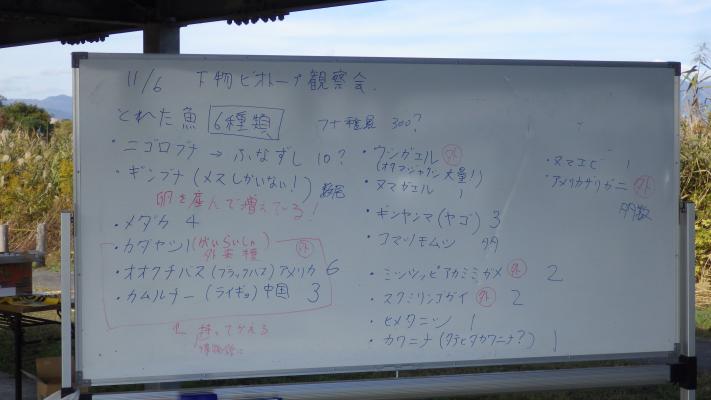 11/6 下物ビオトープ観察会
とれた魚 6種類 フナ種属 300?
・ニゴロブナ → ふなずし 10?
・ギンブナ (メスしかいない!)
卵を産んで増えている!
・メダカ 4
・カダヤシ1 (がいらいしゅ 外来種) 外
・オオクチバス (ブラックバス) アメリカ 6
・カムルチー (ライギョ) 中国 3
持ってかえる
博物館に
・ウシガエル 外
(オタマジャクシ 大量!)
・ヌマガエル 1
・ギンヤンマ (ヤゴ) 3
・コマツモムシ 多
・ミシシッピアカミミガメ 外 2
・スクミリンゴガイ 外 2
・ヒメタニシ 1
・カワニナ (タテヒダカワニナ?) 1
・ヌマエビ 1
・アメリカザリガニ 外
多数